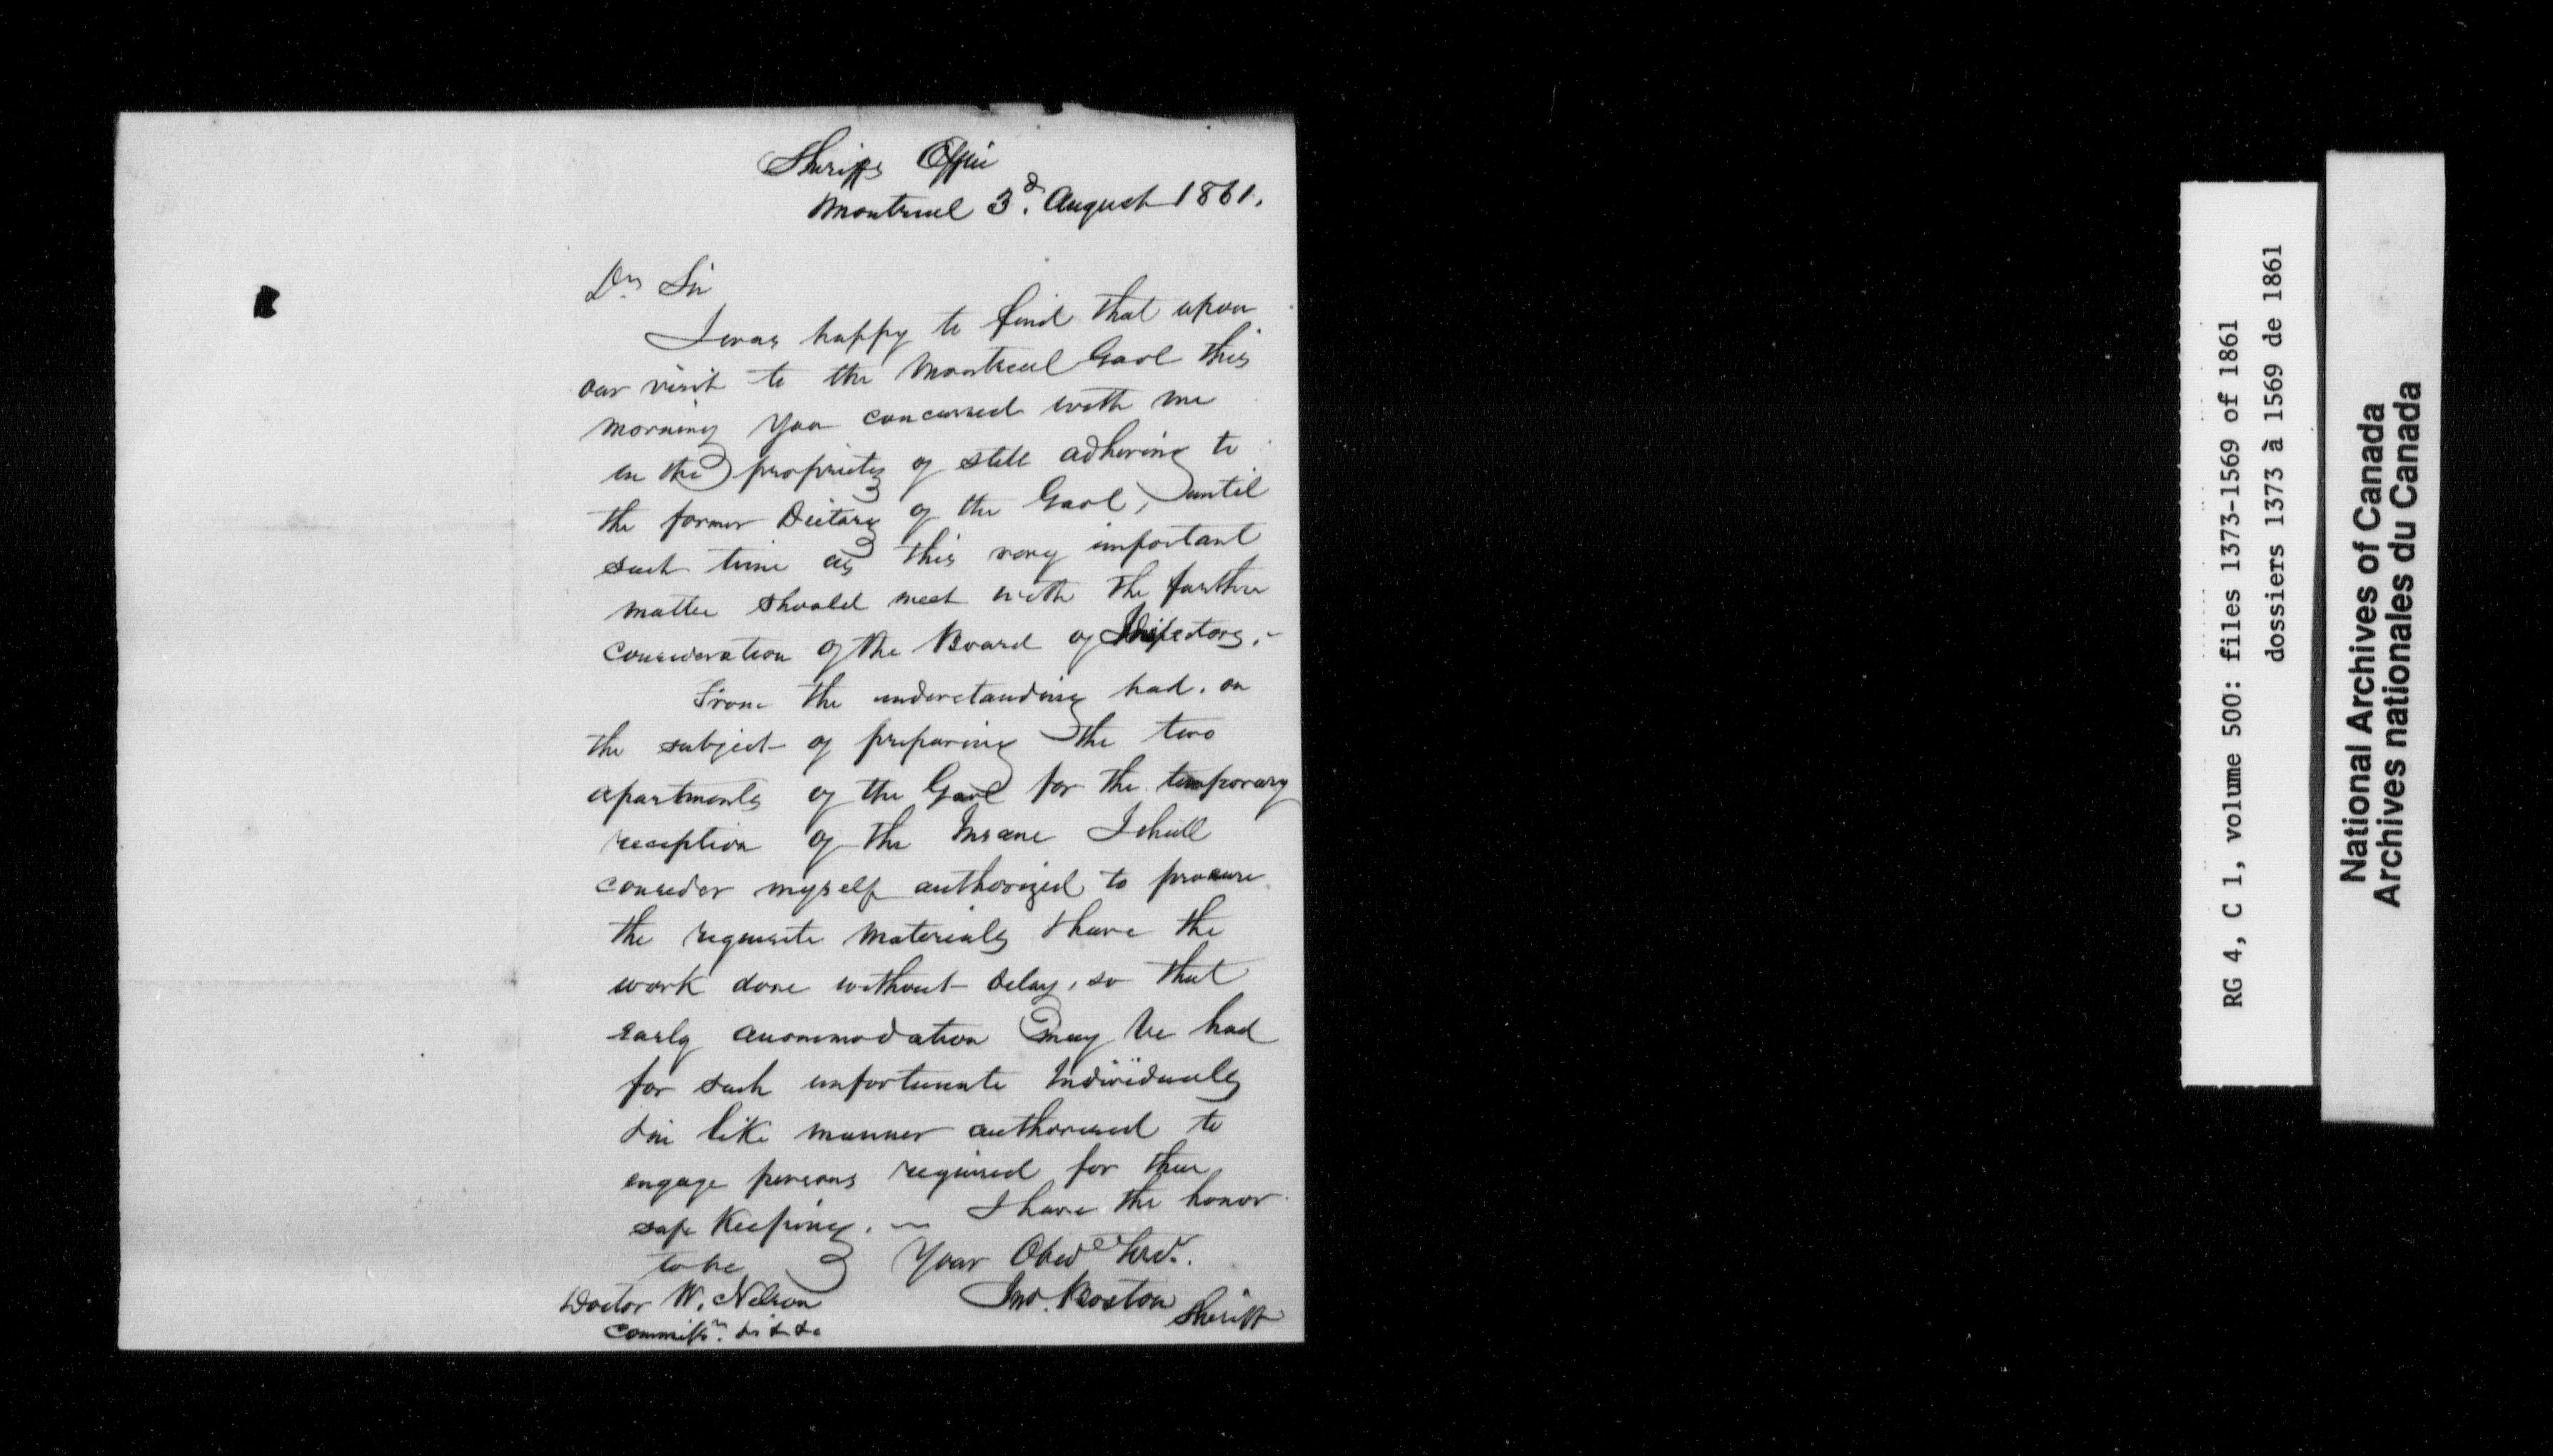 Sheriffs Office
Montreal 3d. August 1861.
Dr Sir
I was happy to find that upon
our visit to the Montreal Gaol this
morning you concurred with me
in the propriety of still adhering to
the former Dietary of the Gaol, until
such time as this very important
matter should meet with the further
consideration of the Board of Inspectors. -
From the understanding had, on
the subject of preparing the two
apartments of the Gaol for the temporary
reception of the Insane I shall
consider myself authorized to procure
the requisite materials & have the
work done without delay, so that
early accommodation may be had
for such unfortunate Individuals
& in like manner authorised to
engage persons required for their
safe Keeping. ~ I have the honor
to be
Your Obedt Servt.
Jno. Boston
Sheriff
Doctor W. Nelson
Commissr. &c &c &c
RG 4, C 1, volume 500: files 1373-1569 of 1861
dossiers 1373 à 1569 de 1861
National Archives of Canada
Archives nationales du Canada